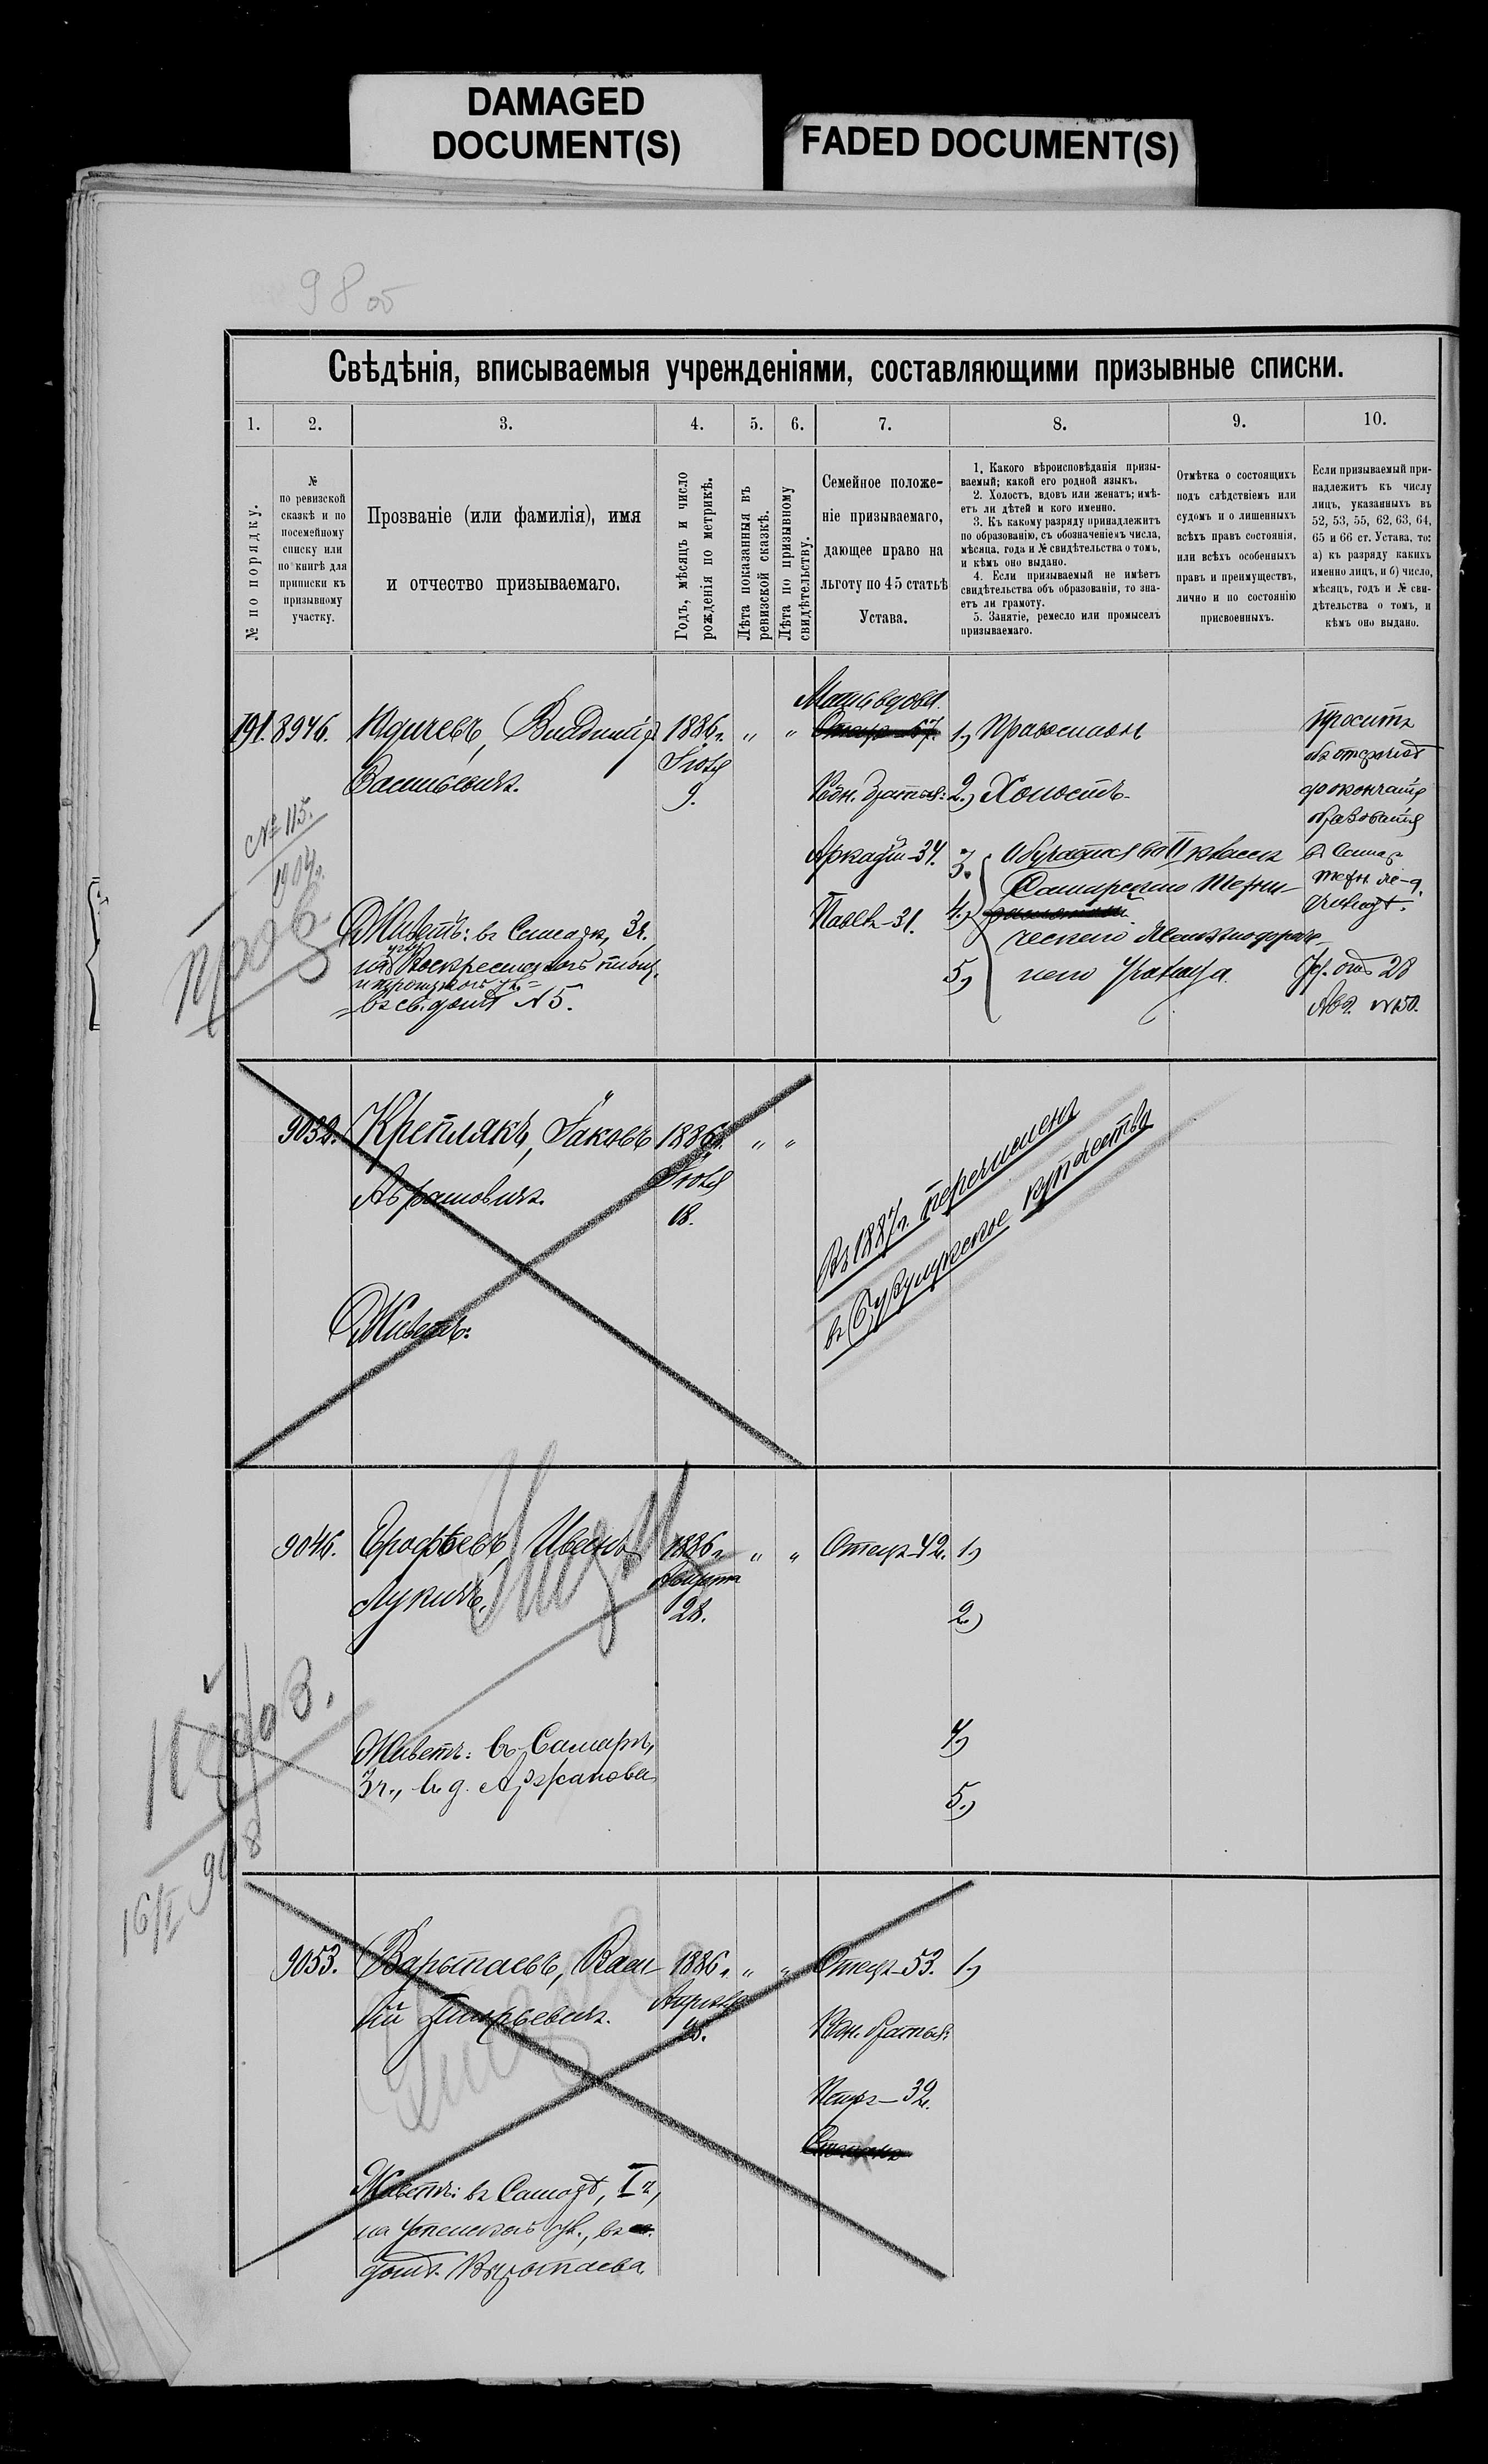 DAMAGED
DOCUMENT(S)
FADED DOCUMENT(S)
98 об
Свѣдѣнія, вписываемыя учрежденіями, составляющими призывные списки.
1.
2.
3.
4.
5.
6.
7.
8.
9.
10.
№ по порядку.
№
по ревизской
сказкѣ и по
посемейному
списку или
по книгѣ для
приписки къ
призывному
участку.
Прозваніе (или фамилія), имя
и отчество призываемаго.
Годъ, мѣсяцъ и число
рожденія по метрикѣ.
Лѣта показанныя въ
ревизской сказкѣ.
Лѣта по призывному
свидѣтельству.
Семейное положе-
ніе призываемаго,
дающее право на
льготу по 45 статьѣ
Устава.
1. Какого вѣроисповѣданія призы-
ваемый; какой его родной языкъ.
2. Холостъ, вдовъ или женатъ; имѣ-
етъ ли дѣтей и кого именно.
3. Къ какому разряду принадлежитъ
по образованію, съ обозначеніемъ числа,
мѣсяца, года и № свидѣтельства о томъ,
и кѣмъ оно выдано.
4. Если призываемый не имѣетъ
свидѣтельства объ образованіи, то зна-
етъ ли грамоту.
5. Занятіе, ремесло или промыселъ
призываемаго.
Отмѣтка о состоящихъ
подъ слѣдствіемъ или
судомъ и о лишенныхъ
всѣхъ правъ состоянія,
или всѣхъ особенныхъ
правъ и преимуществъ,
лично и по состоянію
присвоенныхъ.
Если призываемый при-
надлежитъ къ числу
лицъ, указанныхъ въ
52, 53, 55, 62, 63, 64,
65 и 66 ст. Устава, то:
а) къ разряду какихъ
именно лицъ, и б) число,
мѣсяцъ, годъ и № сви-
дѣтельства о томъ, и
кѣмъ оно выдано.
191. 8946. Юдичевъ, Владиміръ 1886 г. " "
Васильевичъ. Іюля
9.
Мать вдова.
Родн. братья:
Аркадій-34.
Павелъ-31.
1) Православн
2.) Холостъ
3. Обучался во II классѣ
Самарскаго Техни-
4.) ческаго Желѣзнодорож-
5) наго Училища.
проситъ
объ отсрочкѣ
до окончанія
образованія
въ Самар
техн. же-д.
училищѣ.
от 28
№ 115.
Живетъ: въ Самарѣ, 3ч.
на Воскресенской площ.
въ св. домѣ № 5.
9032. Креплякъ, Іаковъ 1886 г. " "
Абрамовичъ. Іюля
18.
Живетъ:
Въ 1887 г. перечисленъ
въ Бузулукское купечество
9046. Ерофѣевъ, Иванъ 1886 г. " " Отецъ-42. 1)
Лукичъ. Августа
28. 2.)
Живетъ: въ Самарѣ, 4)
3ч., въ д. Аржанова 5.)
16/I 908
9053. Варыпаевъ, Васи- 1886 г. " " Отецъ-53. 1)
лій Дмитріевичъ. Апрѣля
Родн. братья:
Петръ-32.
Живетъ: въ Самарѣ, I ч,
на Успенской ул., въ
домѣ Варыпаева